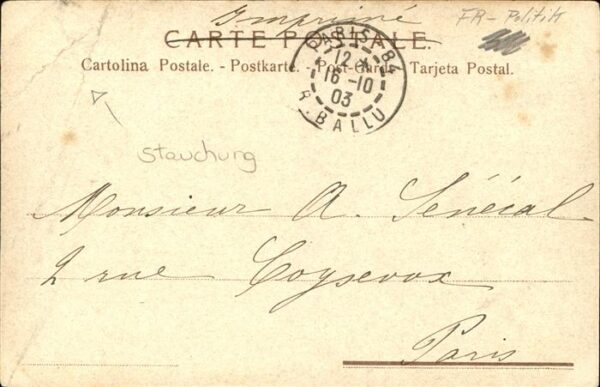 Imprimé
FR-Politik
CARTE POSTALE.
Cartolina Postale. - Postkarte. - Post-Card. - Tarjeta Postal.
PARIS-84
12
16-10
03
R. BALLU
Stauchung
Monsieur A. Sénécal
2 rue Coysevox
Paris